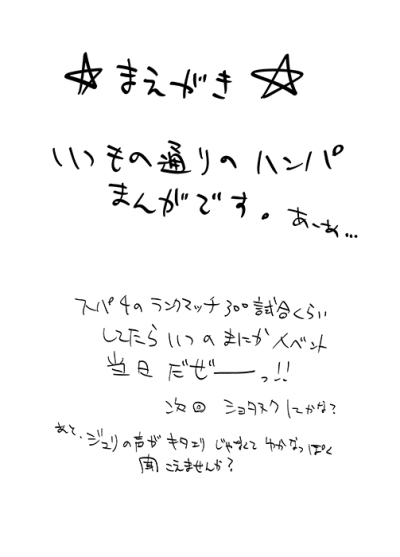 ☆ まえがき ☆
いつもの通りのハンパ
まんがです。 あーあ…
スパ4のランクマッチ300試合くらい
してたらいつのまにかイベント
当日だぜーっ!!
次回 ショタスク にかな?
あと、ジュリの声がキタエリじゃなくてゆかなっぽく
聞こえませんか?